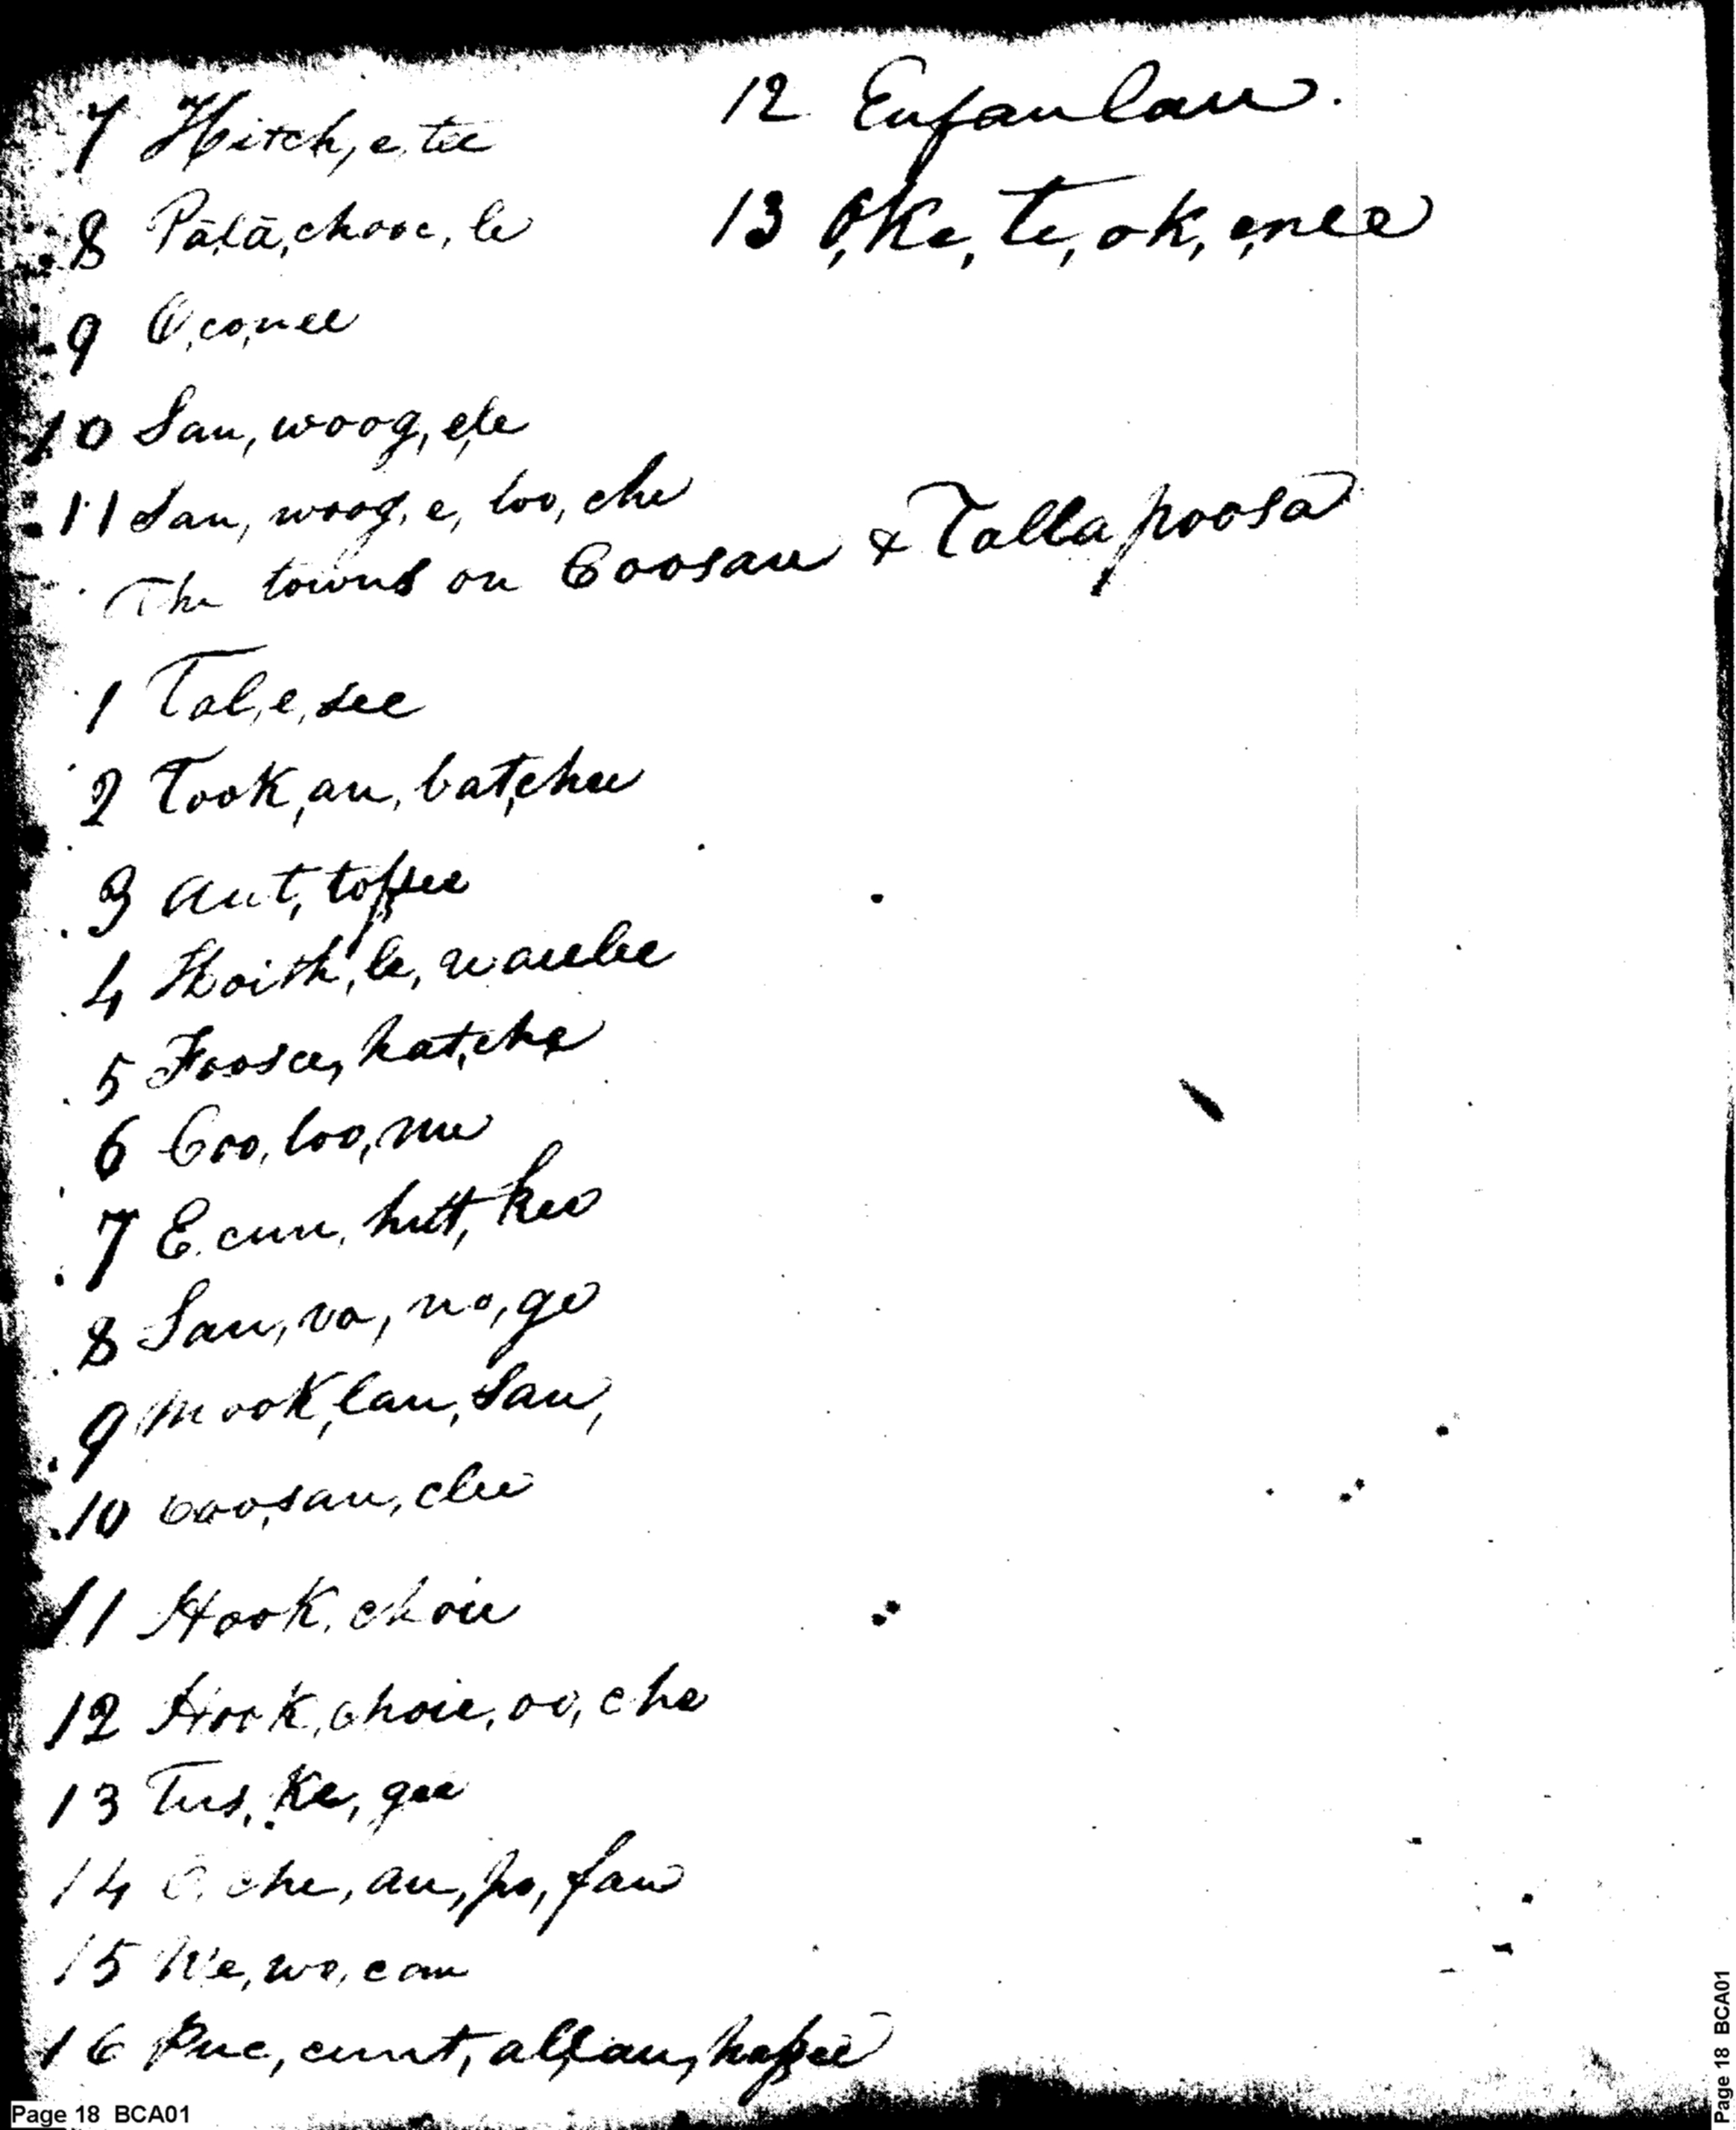 7 Hitch,e,tee
8 Pā,lā,chooc,le
9 O,co,nee
10 Sau,woog,ele
11 Sau,woog,e,loo,che
12 Eufaulau.
13 O,ke,te,ok,e,nee
The towns on Coosau & Tallapoosa
1 Tal,e,see
2 Took,au,bat,chee
3 Aut,tossee
4 Hoith,le,waulee
5 Foosce,hat,che
6 Coo,loo,me
7 E,cun,hutt,kee
8 Sau,va,no,ge
9 Mook,lau,sau,
10 Coo,sau,dee
11 Hook,choie
12 Hook,choie,oo,che
13 Tus,ke,gee
14 O,che,au,po,fau
15 We,wo,cau
16 Puc,cunt,al,lau,hassee
Page 18 BCA01
Page 18 BCA01